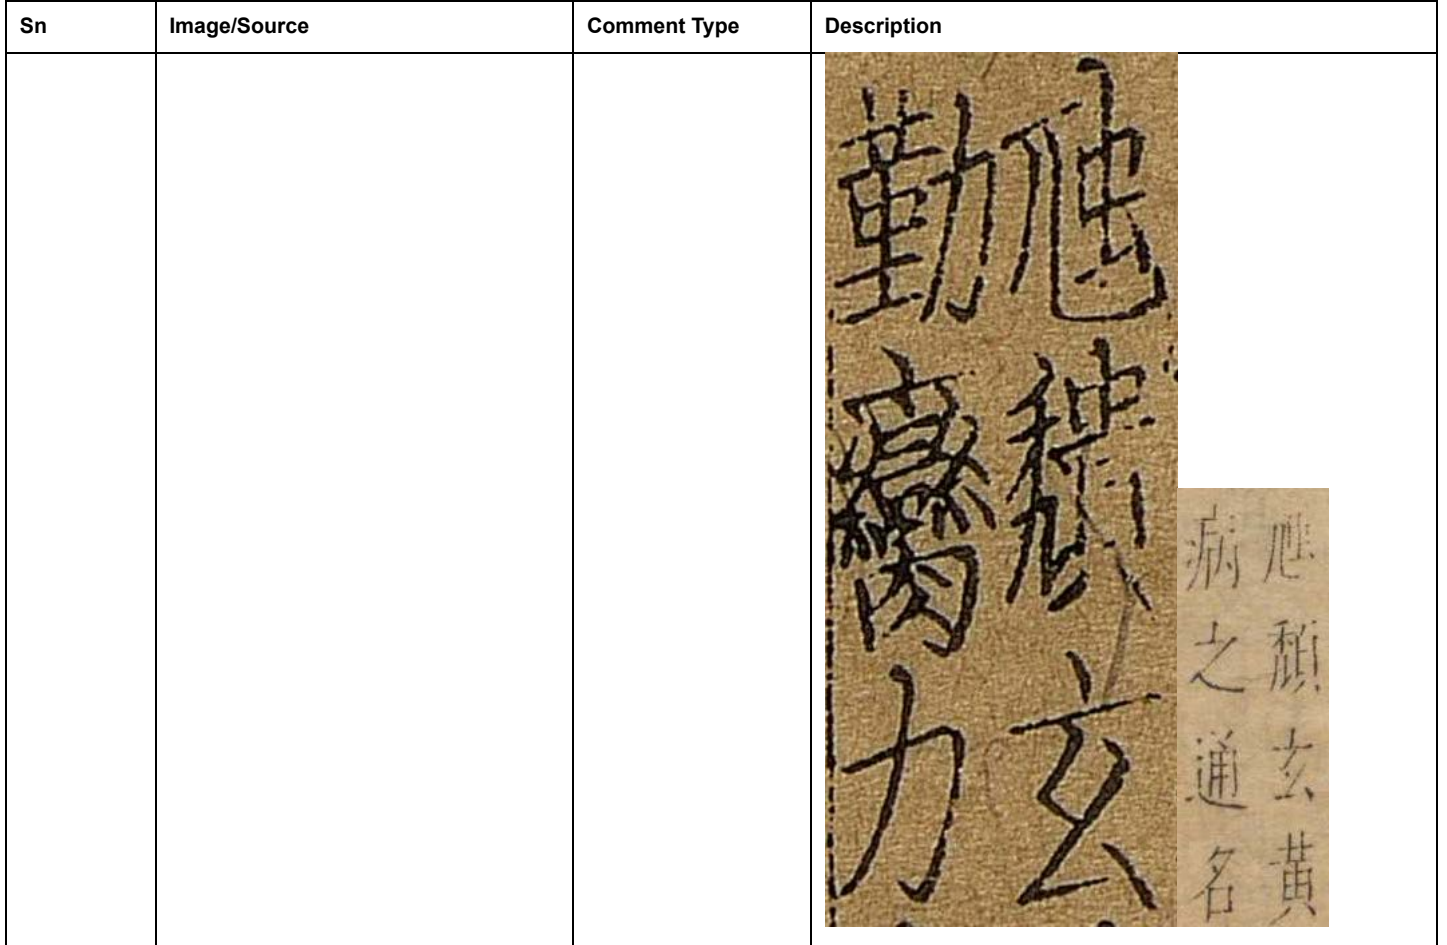 Sn Image/Source Comment Type Description
虺穨玄
勤力
虺頽玄黃
病之通名